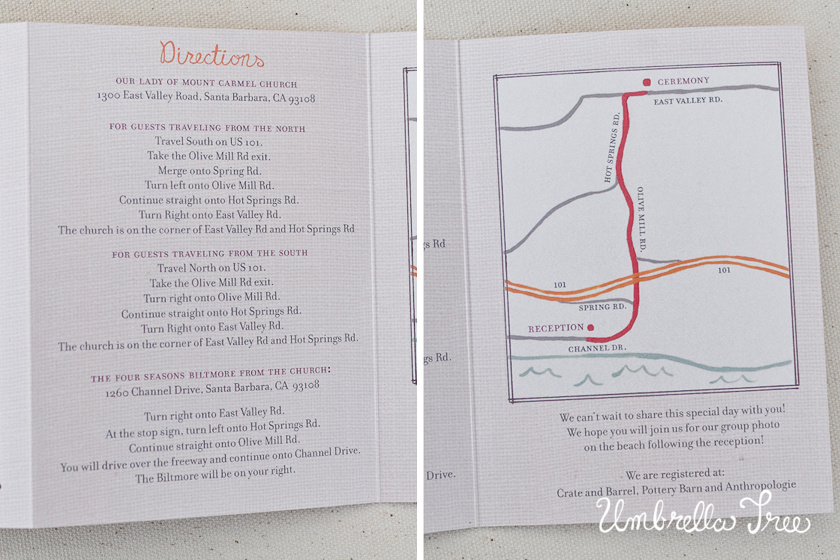 Directions
OUR LADY OF MOUNT CARMEL CHURCH
1300 East Valley Road, Santa Barbara, CA 93108
FOR GUESTS TRAVELING FROM THE NORTH
Travel South on US 101.
Take the Olive Mill Rd exit.
Merge onto Spring Rd.
Turn left onto Olive Mill Rd.
Continue straight onto Hot Springs Rd.
Turn Right onto East Valley Rd.
The church is on the corner of East Valley Rd and Hot Springs Rd
FOR GUESTS TRAVELING FROM THE SOUTH
Travel North on US 101.
Take the Olive Mill Rd exit.
Turn right onto Olive Mill Rd.
Continue straight onto Hot Springs Rd.
Turn Right onto East Valley Rd.
The church is on the corner of East Valley Rd and Hot Springs Rd.
THE FOUR SEASONS BILTMORE FROM THE CHURCH:
1260 Channel Drive, Santa Barbara, CA 93108
Turn right onto East Valley Rd.
At the stop sign, turn left onto Hot Springs Rd.
Continue straight onto Olive Mill Rd.
You will drive over the freeway and continue onto Channel Drive.
The Biltmore will be on your right.
gs Rd
gs Rd.
Drive.
CEREMONY
EAST VALLEY RD.
HOT SPRINGS RD.
OLIVE MILL RD.
101
101
SPRING RD.
RECEPTION
CHANNEL DR.
We can't wait to share this special day with you!
We hope you will join us for our group photo
on the beach following the reception!
We are registered at:
Crate and Barrel, Pottery Barn and Anthropologie
Umbrella Tree